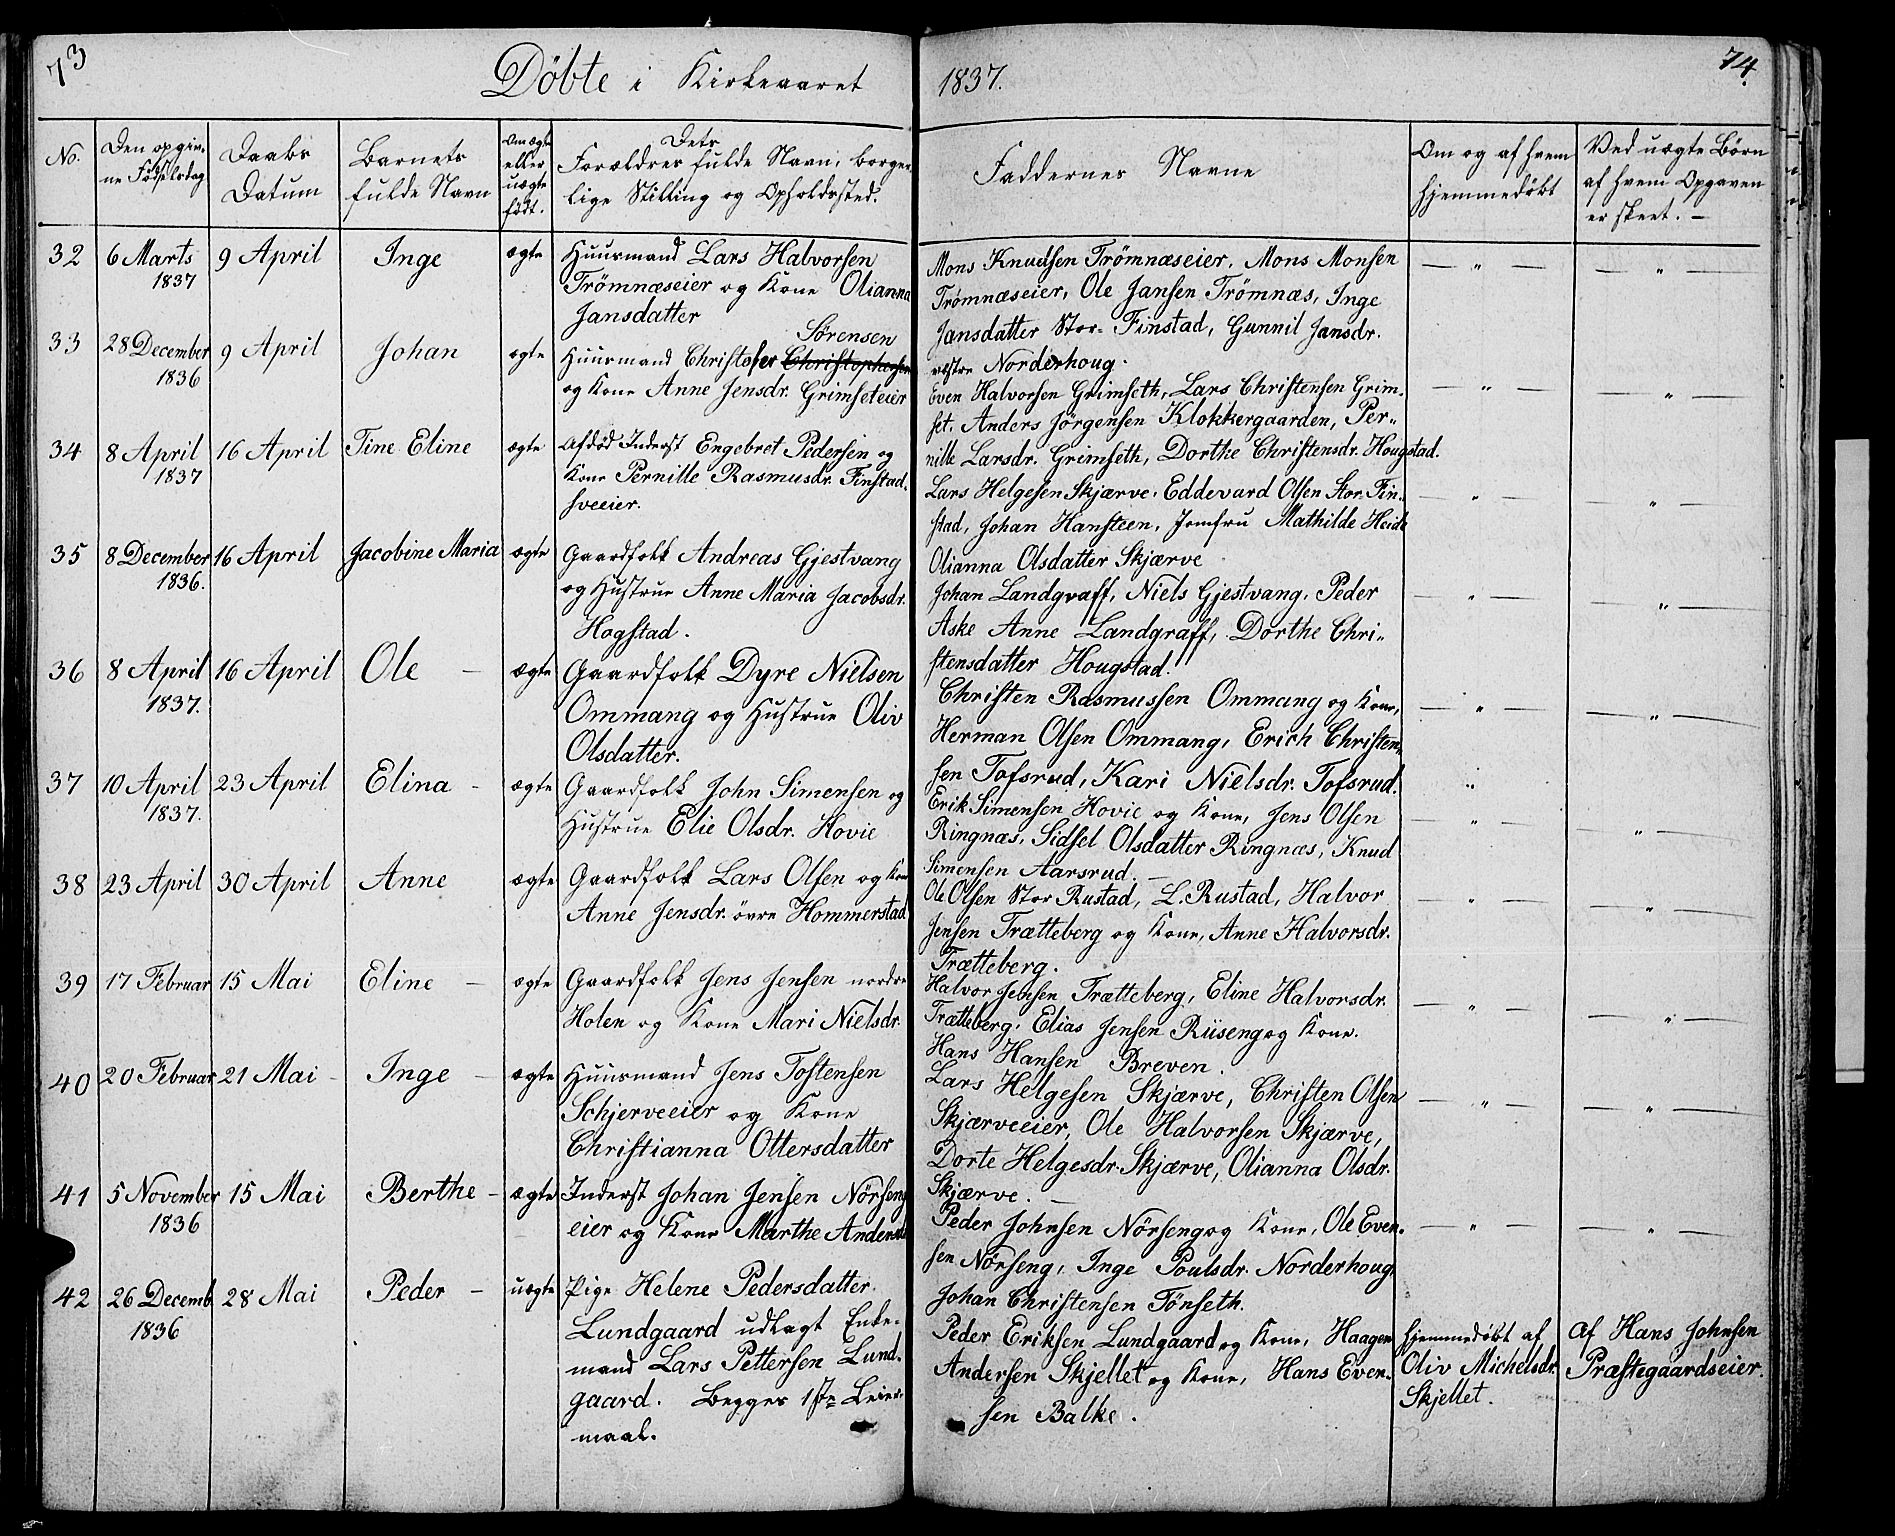 73
Döbte i Kirkeaaret
No.
Den opgiv-
ne Fødselsdag
Daabs
Datum
Barnets
fulde Navn
Om ægte
eller
uægte
født.
Dets
Forældres fulde Navn, borger-
lige Stilling og Opholdssted.
32
6 Marts
1837
9 April
Inge
ægte
Huusmand Lars Halvorsen
Trömnæseier og Kone Olianna
Jansdatter
33
28 December
1836
9 April
Johan
ægte
Sørensen
Huusmand Christofer Christophersen
og Kone Anne Jensdr. Grimseteier
34
8 April
1837
16 April
Tine Eline
ægte
Afdød Inderst Engebret Pedersen og
Kone Pernille Rasmusdr. Finstad-
sveeier.
35
8 December
1836.
16 April
Jacobine Maria
ægte
Gaardfolk Andreas Gjestvang
og Hustrue Anne Maria Jacobsdr.
Hogstad.
36
8 April
1837.
16 April
Ole —
ægte
Gaardfolk Dyre Nielsen
Ommang og Hustrue Oliv
Olsdatter.
37
10 April
1837.
23 April
Elina -
ægte
Gaardfolk John Simensen og
Hustrue Elie Olsdr. Hovie
38
23 April
30 April
Anne
ægte
Gaardfolk Lars Olsen og Kone
Anne Jensdr. övre Hommerstad
39
17 Februar
15 Mai
Eline —
ægte
Gaardfolk Jens Jensen nordre
Holen og Kone Mari Nielsdr.
40
20 Februar
21 Mai -
Inge —
ægte
Huusmand Jens Tostensen
Schjerveeier og Kone
Christianna Ottersdatter
41
5 November
1836
15 Mai
Berthe -
ægte
Inderst Johan Jensen Nörseng
eier og Kone Marthe Andersdr
42
26 Decemb.
1836
28 Mai
Peder —
uægte
Pige Helene Pedersdatter
Lundgaard udlagt Enke-
mand Lars Pettersen Lund-
gaard. Begges 1ste Leier-
maal.
74
1837.
Faddernes Navne
Om og af hvem
hjemmedøbt
Ved uægte Børn
af hvem Opgaven
er skeet. —
Mons Knudsen Trömnæseier, Mons Monsen
Trömnæseier, Ole Jansen Trömnæs, Inge
Jansdatter Stor-Finstad, Gunnil Jansdr.
vestre Norderhoug.
— " —
— " —
Even Halvorsen Grimseth, Lars Christensen Grim-
set, Anders Jörgensen Klokkergaarden, Per-
nille Larsdr. Grimseth, Dorthe Christensdr. Hougstad.
— " —
" —
Lars Helgesen Skjærve, Eddevard Olsen Stor-Fin-
stad, Johan Hansteen, Jomfru Mathilde Heide
Olianna Olsdatter Skjærve
— " —
" —
Johan Landgraff, Niels Gjestvang, Peder
Aske Anne Landgraff, Dorthe Chri-
stensdatter Hougstad.
— " —
— " —
Christen Rasmussen Ommang og Kone,
Herman Olsen Ommang, Erich Christen-
sen Tofsrud, Kari Nielsdr. Tofsrud.
— " —
— " —
Erik Simensen Hovie og Kone, Jens Olsen
Ringnæs, Sidsel Olsdatter Ringnæs, Knud
Simensen Aarsrud. —
— " —
— " —
Ole Olsen Stor Rustad, L. Rustad, Halvor
Jensen Trætteberg og Kone, Anne Halvorsdr.
Trætteberg.
— " —
— " —
Halvor Jensen Trætteberg, Eline Halvorsdr.
Trætteberg, Elias Jensen Riiseng og Kone.
Hans Hansen Breven.
— " —
— " —
Lars Helgesen Skjærve, Christen Olsen
Skjærveeier, Ole Halvorsen Skjærve,
Dorte Helgesdr. Skjærve, Olianna Olsdr.
Skjærve. —
— " —
— " —
Peder Johnsen Nörseng og Kone, Ole Even-
sen Nörseng, Inge Poulsdr. Norderhoug,
Johan Christensen Tönseth.
— " —
— " —
Peder Eriksen Lundgaard og Kone, Haagen
Andersen Skjellet og Kone, Hans Even-
sen Balke.
hjemmedøbt af
Oliv Michelsdr.
Skjellet.
Af Hans Johnsen
Præstegaardseier.